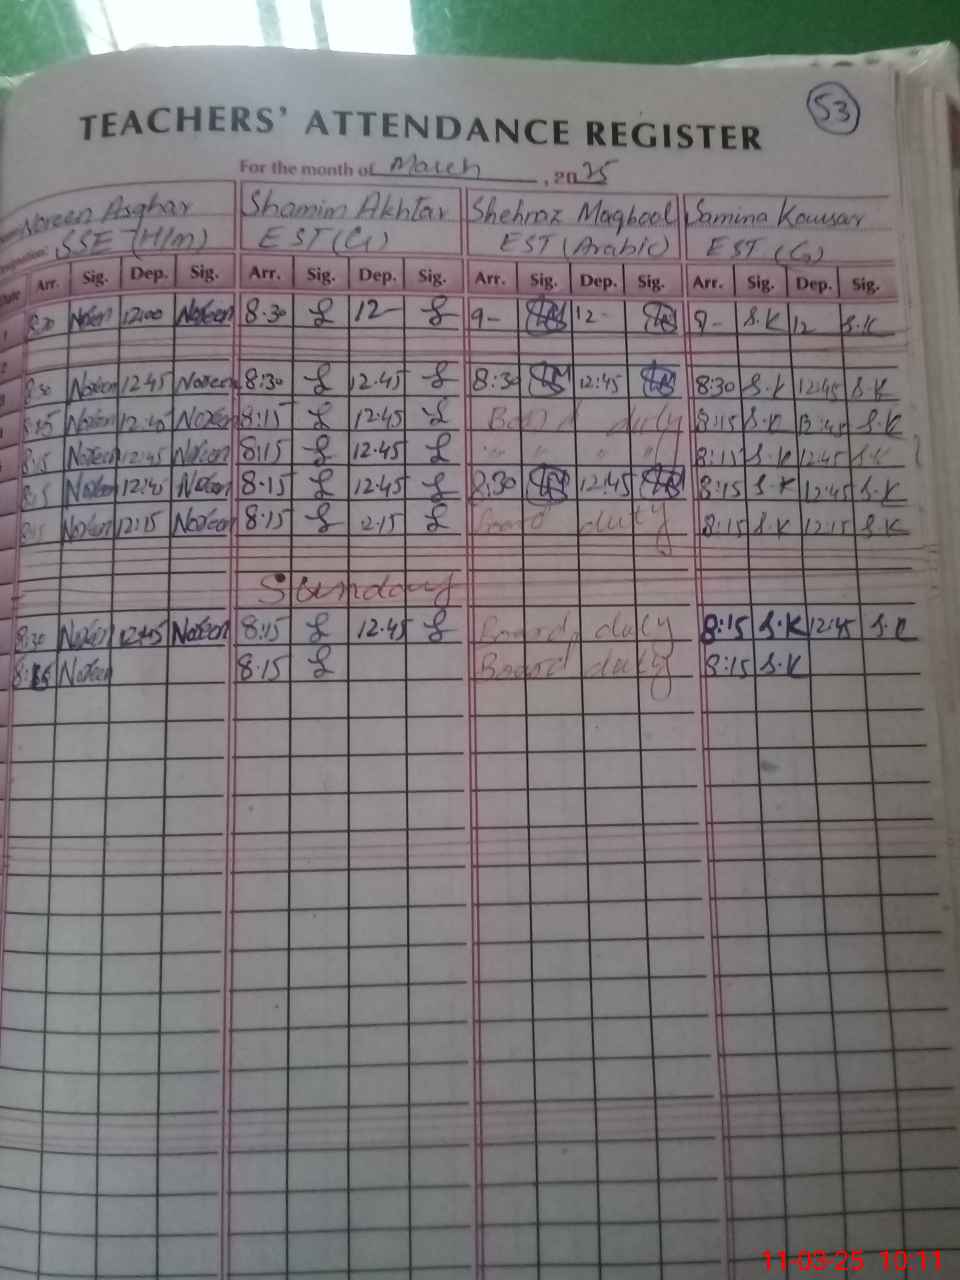 53
TEACHERS' ATTENDANCE REGISTER
For the month of March, 2025
Noreen Asghar Shamim Akhtar Shehroz Maqbool Samina Kousar
SSE (H/m) EST (G) EST (Arabic) EST (G)
Date Arr. Sig. Dep. Sig. Arr. Sig. Dep. Sig. Arr. Sig. Dep. Sig. Arr. Sig. Dep. Sig.
8:30 Noreen 12:00 Noreen 8.30 12- 9- 12- 9- S.K 12 S.K
8:30 Noreen 12:45 Noreen 8:30 12.45 8:30 12:45 8:30 S.K 12:45 S.K
8:15 Noreen 12:45 Noreen 8:15 12.45 Board duty 8:15 S.K 12:45 S.K
8:15 Noreen 12:45 Noreen 8:15 12.45 " " " " 8:15 S.K 12:45 S.K
8:15 Noreen 12:45 Noreen 8.15 12.45 8:30 12:45 8:15 S.K 12:45 S.K
8:15 Noreen 12:15 Noreen 8.15 2.15 Board duty 8:15 S.K 12:15 S.K
Sunday
8:30 Noreen 12:45 Noreen 8:15 12.45 Board duty 8:15 S.K 12:45 S.K
8:15 Noreen 8.15 Board duty 8:15 S.K
11-03-25 10:11